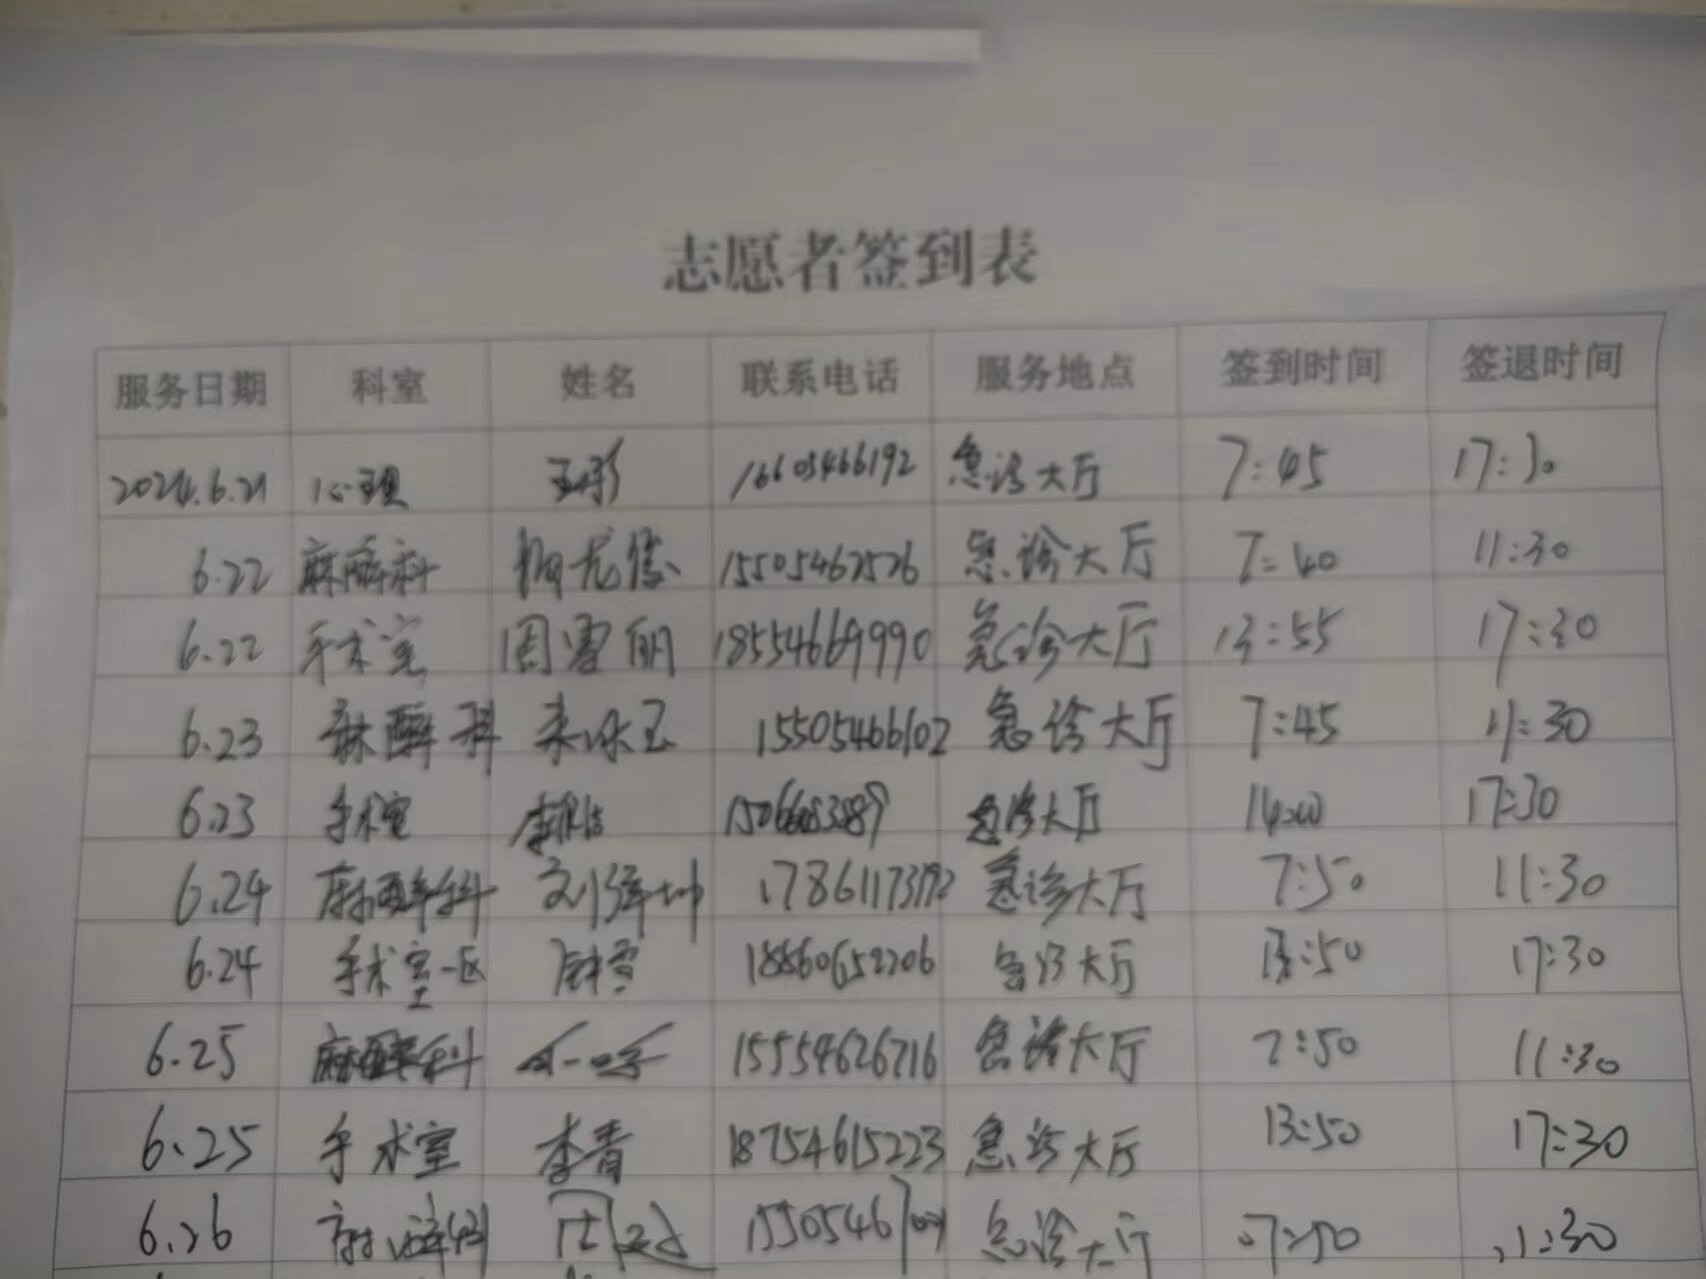 志愿者签到表
服务日期 科室 姓名 联系电话 服务地点 签到时间 签退时间
2024.6.21 心理 王彤 16605466192 急诊大厅 7:45 17:30
6.22 麻醉科 15505462526 急诊大厅 7:40 11:30
6.22 手术室 周雪丽 18554669990 急诊大厅 13:55 17:30
6.23 麻醉科 来冰玉 15505466102 急诊大厅 7:45 11:30
6.23 手术室 急诊大厅 14:00 17:30
6.24 麻醉科 急诊大厅 7:50 11:30
6.24 手术室一区 18860652206 急诊大厅 13:50 17:30
6.25 麻醉科 15554626716 急诊大厅 7:50 11:30
6.25 手术室 李青 18754615223 急诊大厅 13:50 17:30
6.26 麻醉科 急诊大厅 7:50 11:30